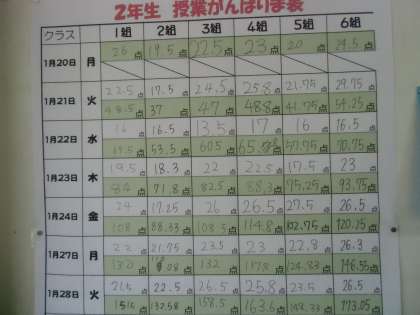 2年生 授業がんばりま表
クラス 1組 2組 3組 4組 5組 6組
1月20日 月 26点 19.5点 22.5点 23点 20点 24.5点
1月21日 火 22.5点 17.5点 24.5点 25.8点 21.75点 29.75点
48.5点 37点 47点 48.8点 41.75点 54.25点
1月22日 水 16点 16.5点 13.5点 17点 16点 16.5点
53.5点 60.5点 57.75点 70.75点
1月23日 木 19.5点 18.3点 22点 22.5点 17.5点 23点
84点 71.8点 82.5点 88.3点 75.25点 93.75点
1月24日 金 24点 17.25点 26点 26.5点 27.5点 26.5点
108点 88.33点 108.5点 114.8点 102.75点 120.25点
1月27日 月 22点 21.75点 23.5点 23点 22.8点 26.3点
132点 146.55点
1月28日 火 22.5点 26.5点 25.8点 23.5点 26.5点
132.58点 158.5点 163.6点 173.05点